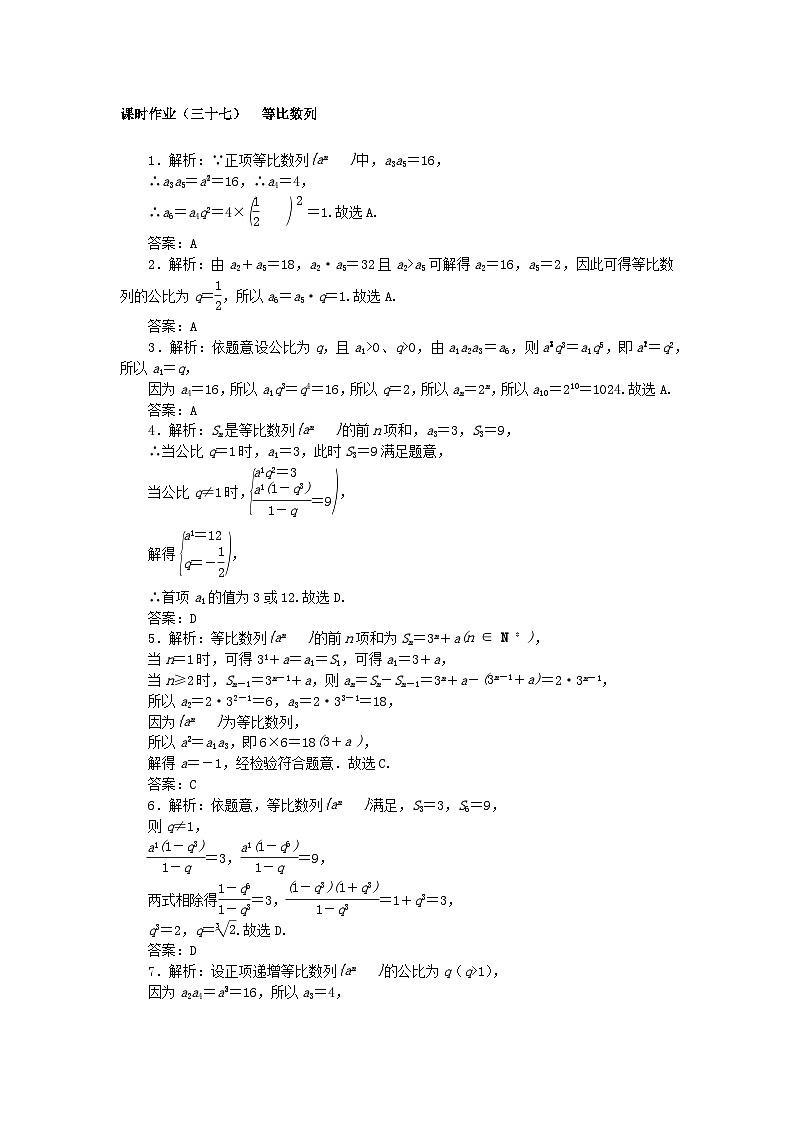 课时作业（三十七） 等比数列
1．解析：∵正项等比数列{aⁿ}中，a₃a₅＝16，
∴a₃a₅＝a²＝16，∴a₄＝4，
∴a₆＝a₄q²＝4×(1/2)²＝1.故选A.
答案：A
2．解析：由a₂＋a₅＝18，a₂·a₅＝32且a₂>a₅可解得a₂＝16，a₅＝2，因此可得等比数
列的公比为q＝1/2，所以a₆＝a₅·q＝1.故选A.
答案：A
3．解析：依题意设公比为q，且a₁>0、q>0，由a₁a₂a₃＝a₆，则a³q³＝a₁q⁵，即a²＝q²，
所以a₁＝q，
因为a₄＝16，所以a₁q³＝q⁴＝16，所以q＝2，所以aₙ＝2ⁿ，所以a₁₀＝2¹⁰＝1024.故选A.
答案：A
4．解析：Sₙ是等比数列{aⁿ}的前n项和，a₃＝3，S₃＝9，
∴当公比q＝1时，a₁＝3，此时S₃＝9满足题意，
当公比q≠1时，{a¹q²＝3
a¹(1－q³)/(1－q)＝9}，
解得{a¹＝12
q＝－1/2}，
∴首项a₁的值为3或12.故选D.
答案：D
5．解析：等比数列{aⁿ}的前n项和为Sₙ＝3ⁿ＋a(n ∈ N*)，
当n＝1时，可得3¹＋a＝a₁＝S₁，可得a₁＝3＋a，
当n≥2时，Sₙ₋₁＝3ⁿ⁻¹＋a，则aₙ＝Sₙ－Sₙ₋₁＝3ⁿ＋a－(3ⁿ⁻¹＋a)＝2·3ⁿ⁻¹，
所以a₂＝2·3²⁻¹＝6，a₃＝2·3³⁻¹＝18，
因为{aⁿ}为等比数列，
所以a²＝a₁a₃，即6×6＝18(3＋a)，
解得a＝－1，经检验符合题意．故选C.
答案：C
6．解析：依题意，等比数列{aⁿ}满足，S₃＝3，S₆＝9，
则q≠1，
a¹(1－q³)/(1－q)＝3，a¹(1－q⁶)/(1－q)＝9，
两式相除得(1－q⁶)/(1－q³)＝3，(1－q³)(1＋q³)/(1－q³)＝1＋q³＝3，
q³＝2，q＝³√2.故选D.
答案：D
7．解析：设正项递增等比数列{aⁿ}的公比为q（q>1），
因为a₂a₄＝a³＝16，所以a₃＝4，